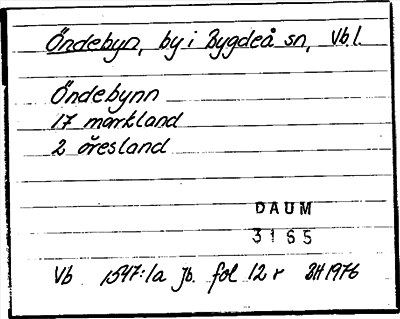 Öndebyn, by i Bygdeå sn, Vbl.
Öndebynn
17 markland
2 öresland
DAUM
3165
Vb 1547:1a Jb. fol 12 r BH 1976